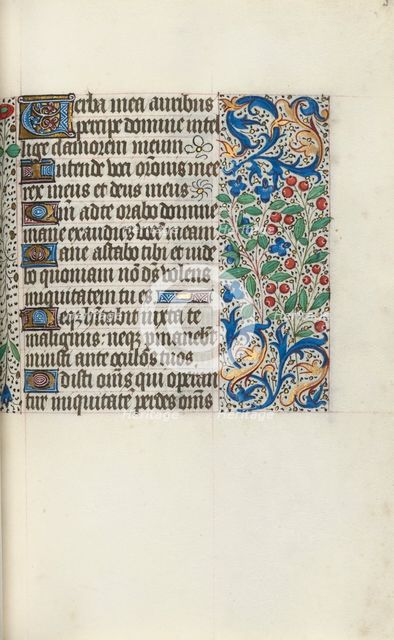 Verba mea auribus
percipe domine intel
lige clamorem meum
Intende voci orōnis mee
rex meus et deus meus
Qm̄ ad te orabo domine
mane exaudies vocē meam
Mane astabo tibi et uide
bo quoniam nō d̄s volens
iniquitatem tu es
Neq̄ habitabit iuxta te
malignus neq̄ permanebūt
iniusti ante oculos tuos
Odisti om̄s qui operan
tur iniquitatē perdes om̄s
Heritage
Heritage